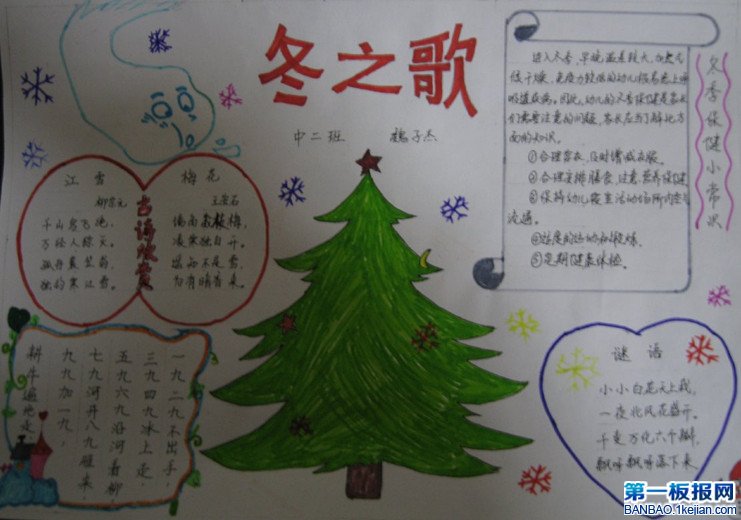 冬之歌
中二班
冬季保健小常识
进入冬季,早晚温差较大,加之气
候干燥,免疫力较低的幼儿极易患上呼
吸道疾病。因此,幼儿的冬季保健是家长
们需要注意的问题,家长应当了解此方
面的知识。
①合理穿衣,及时增减衣服。
②合理安排膳食,注意营养保健
③保持幼儿园生活活动场所内空气
流通。
④适度的运动和锻炼。
⑤定期健康体检。
古诗欣赏
江雪
柳宗元
千山鸟飞绝,
万径人踪灭。
孤舟蓑笠翁,
独钓寒江雪。
梅花
王安石
墙角数枝梅,
凌寒独自开。
遥知不是雪,
为有暗香来。
一九二九不出手,
三九四九冰上走,
五九六九沿河看柳
七九河开八九雁来
九九加一九,
耕牛遍地走
谜语
小小白花天上栽,
一夜北风花盛开。
千变万化六个瓣,
飘呀飘呀落下来
第一板报网
BANBAO.1kejian.com